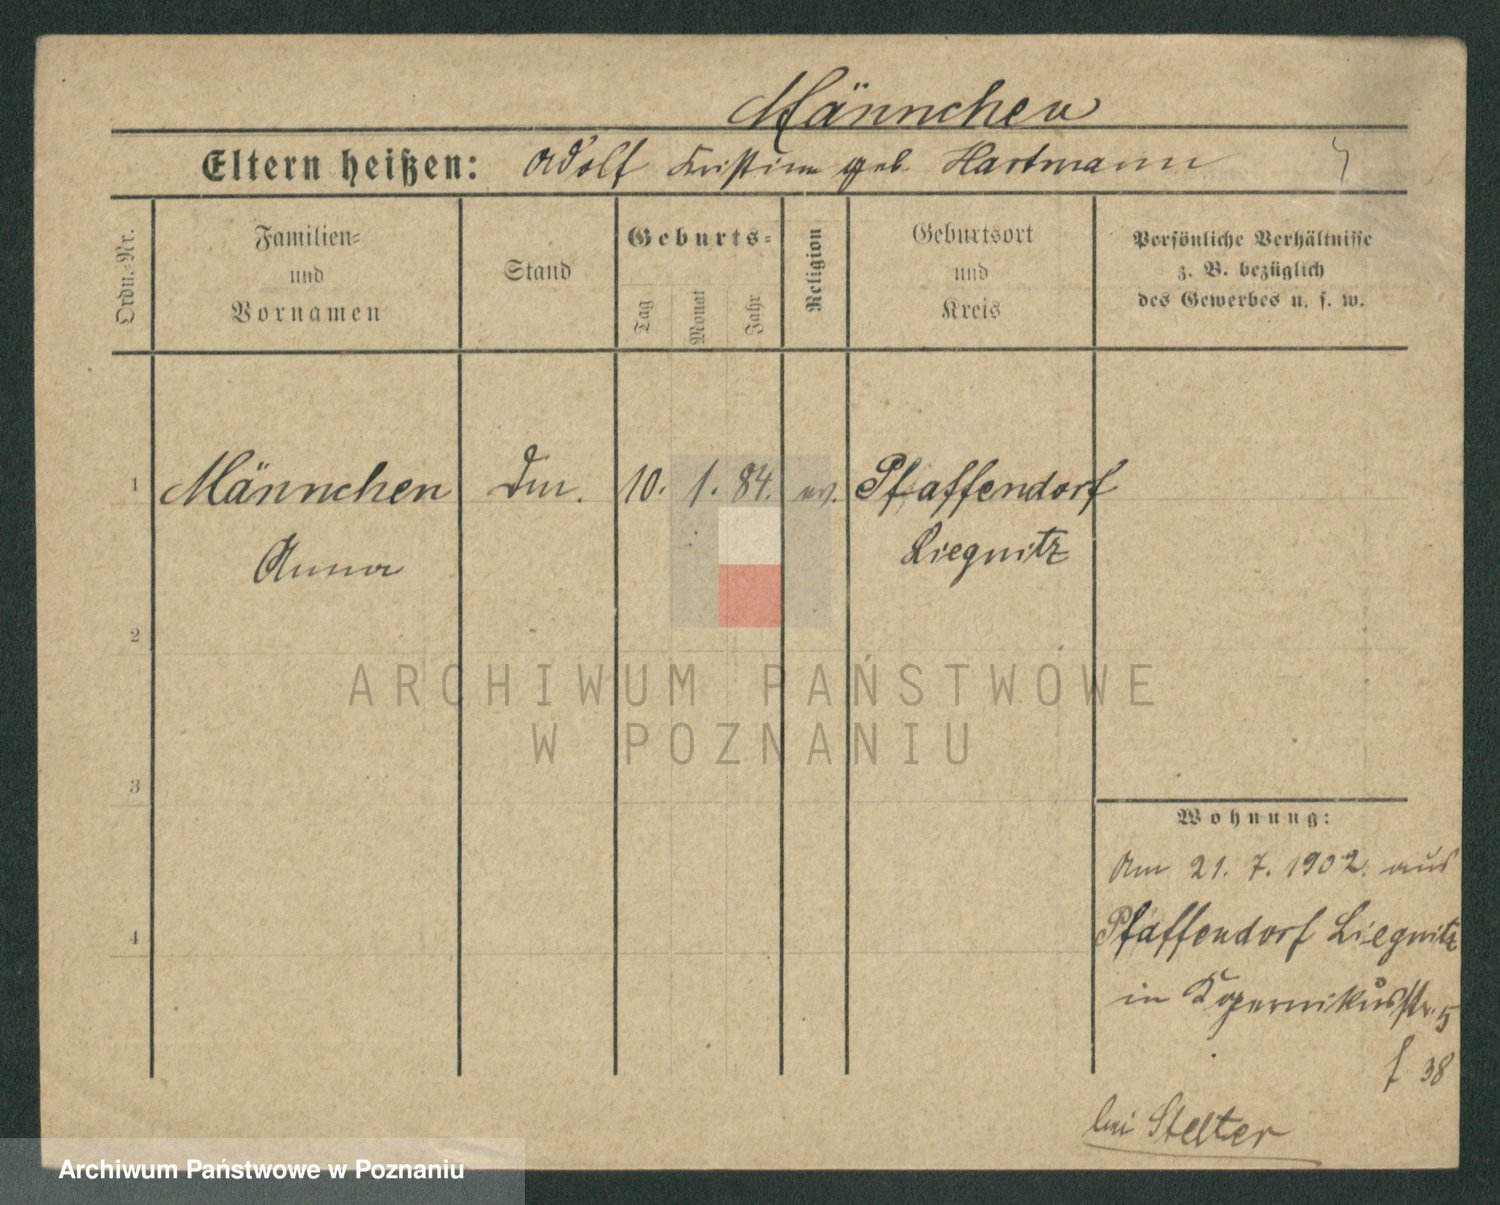 Männchen
Eltern heißen: Adolf Kristine geb. Hartmann
Ordn.-Nr.
Familien-
und
Vornamen
Stand
Geburts-
Tag
Monat
Jahr
Religion
Geburtsort
und
Kreis
Persönliche Verhältnisse
z. B. bezüglich
des Gewerbes u. s. w.
1 Männchen 10. 1. 84. ev. Pfaffendorf
Anna Liegnitz
2
3
4
ARCHIWUM PAŃSTWOWE
W POZNANIU
Wohnung:
Am 21. 7. 1902. aus
Pfaffendorf Liegnitz
in Kopernikusstr. 5
f 38
bei Stelter
Archiwum Państwowe w Poznaniu